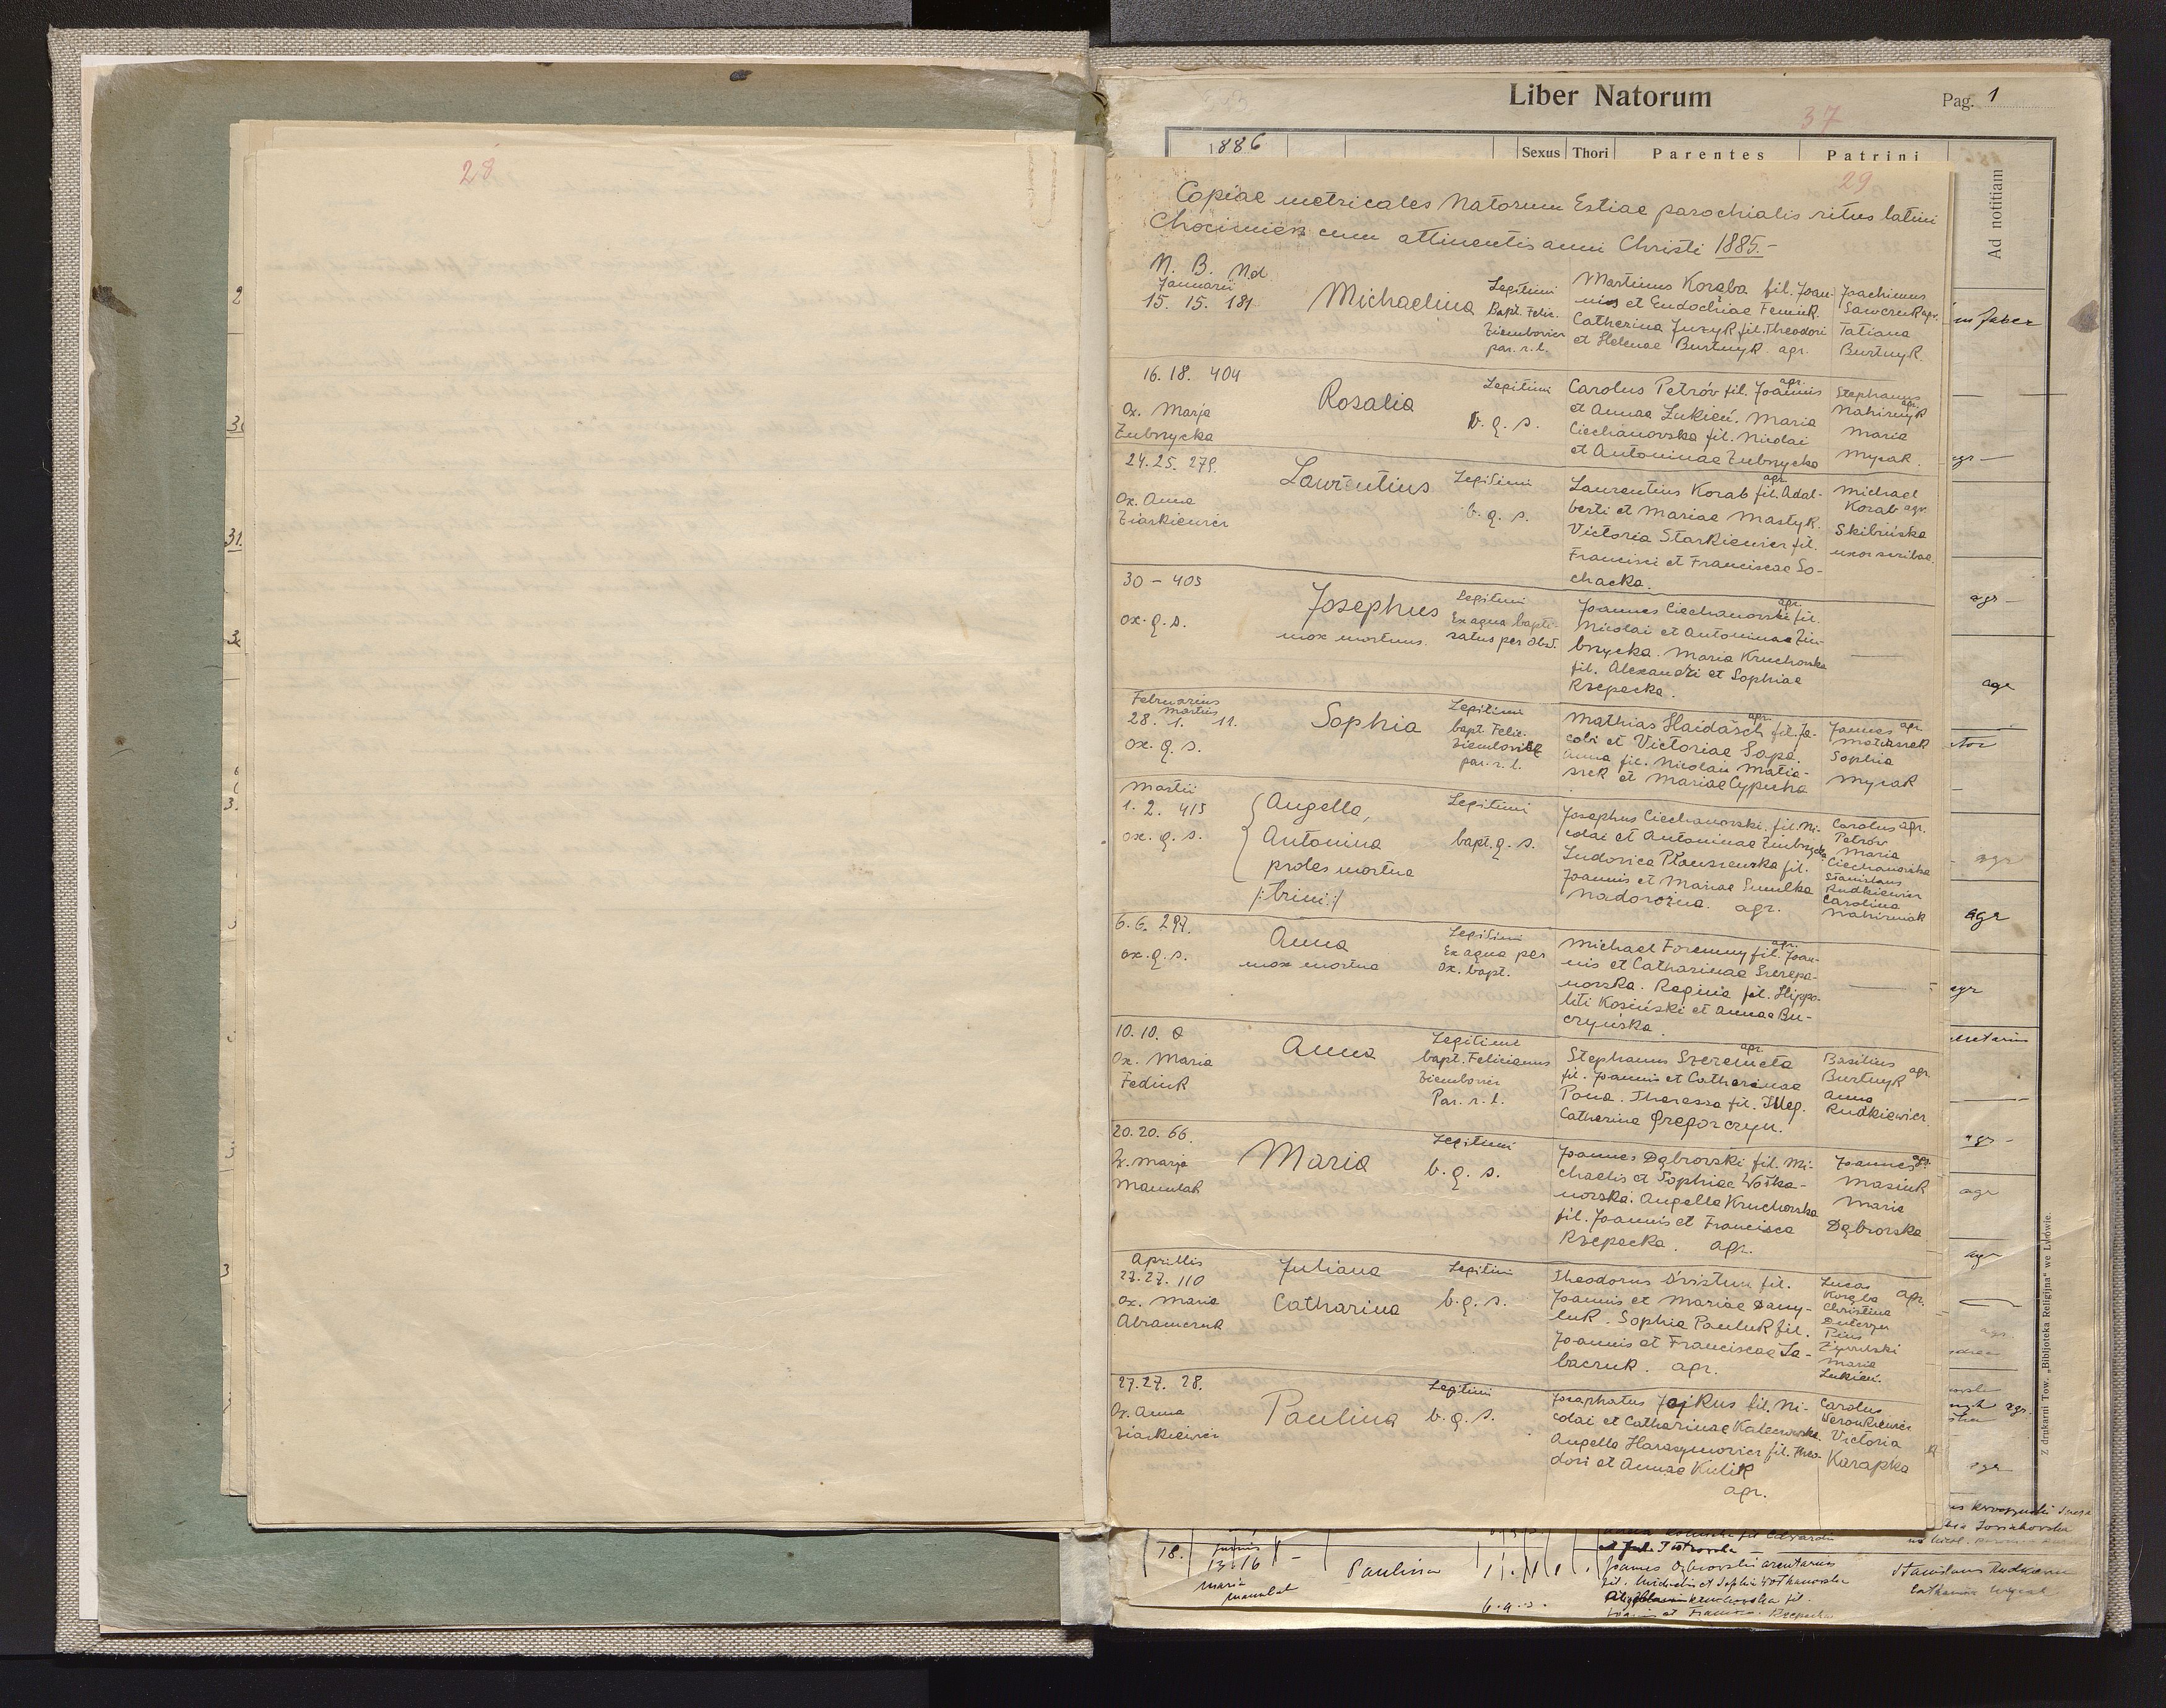 28
Liber Natorum
Pag. 1
37
1886
Sexus Thori Parentes Patrini
Ad notitiam
29
Copiae metricales Natorum Estiae parochialis ritus latini
Chocimien cum attinentis anni Christi 1885.-
N. B. Nd
Januarii
15. 15. 181
Michaelina
Legitimi
Bapt. Felic.
Ziembovicz
par. r. l.
Martinus Koraba fil. Joan-
nis et Eudochiae Feniuk.
Catherina Juzyk fil. Theodori
et Helenae Burtnyk. agr.
Joachimus
Sawczuk agr.
Tatiana
Burtnyk.
16. 18. 404
Ox. Marja
Zubrzycka
Rosalia
Legitimi
b. q. s.
Carolus Petrów fil. Joannis agr.
et Annae Łukień. Maria
Ciechanovska fil. Nicolai
et Antoninae Zubrzycka
Stephanus
Nahirnyk agr.
Maria
Mycak.
24. 25. 279.
Ox. Anna
Ziarkievicz
Laurentius
Legitimi
b. q. s.
Laurentius Korab fil. Adal- agr.
berti et Mariae Mastyk.
Victoria Starkievicz fil.
Francisci et Franciscae So-
chacka.
Michael
Korab agr.
Skibińska
uxor scribae.
30 - 405
ox. q. s.
Josephus
mox mortuus.
Legitimi
Ex aqua bapti-
satus per obst.
Joannes Ciechanovski fil. agr.
Nicolai et Antoninae Zu-
brzycka. Maria Kruchovska
fil. Alexandri et Sophiae
Rzepecka.
Februarius
Martius
28. 1. 11.
ox. q. s.
Sophia
Legitimi
bapt. Felic.
Ziembovicz
par. r. l.
Mathias Haidasch fil. Ja- agr.
cobi et Victoriae Sapa.
Anna fil. Nicolai Matia-
szek et Mariae Cypucha
Joannes agr.
Matiaszek
Sophia
Mycak
Martii
1. 2. 415
ox. q. s.
Angella,
Antonina
proles mortua
/:trini:/
Legitimi
bapt. q. s.
Josephus Ciechanovski. fil. Ni-
colai et Antoninae Zubrzycka
Ludovica Płauszevska fil.
Joannis et Mariae Smulka
Nadorożna. agr.
Carolus agr.
Petrów
Maria
Ciechanovska
Stanislaus
Rudkievicz
Carolina
Nahirniak
6. 6. 297.
ox. q. s.
Anna
mox mortua
Legitimi
Ex aqua per
ox. bapt.
Michael Foremny fil. Joan- agr.
nis et Catharinae Szczepa-
novska. Regina fil. Hippo-
liti Kosiński et Annae Bu-
czyńska.
10. 10. 0
Ox. Maria
Fediuk
Anna
Legitimi
bapt. Felicianus
Ziembovicz
Par. r. l.
Stephanus Szeremeta agr.
fil. Joannis et Catharinae
Pona. Theressa fil. Illeg.
Catherina Gregorczyn.
Basilius
Burtnyk agr.
Anna
Rudkiewicz
20. 20. 66.
Ox. Marja
Manulak
Maria
Legitimi
b. q. s.
Joannes Dąbrovski fil. Mi-
chaelis et Sophiae Wotka-
novska. Angella Kruchovska
fil. Joannis et Francisca
Rzepecka. agr.
Joannes agr.
Masiuk
Maria
Dąbrovska
Aprillis
27. 27. 110
ox. Maria
Abramczuk
Juliana
Catharina
Legitimi
b. q. s.
Theodorus Svistun fil.
Joannis et Mariae Dany-
luk. Sophia Pauluk fil.
Joannis et Franciscae La-
baczuk. agr.
Lucas
Koraba agr.
Christina
Pius
Żywulski
Maria
Łukień.
27. 27. 28.
Ox. Anna
Ziarkiewicz
Paulina
Legitimi
b. q. s.
Josaphatus Jajkus fil. Ni-
colai et Catharinae Kalenovska.
Angella Harasymovicz fil. Theo-
dori et Annae Kulik
agr.
Carolus
Weronkievicz
Victoria
Karapka
faber
agr
Z drukarni Tow. „Bibljoteka Religijna" we Lwowie.
18.
Junius
13. 16
Maria
Manulak
Paulina
b. q. s.
Stanislaus